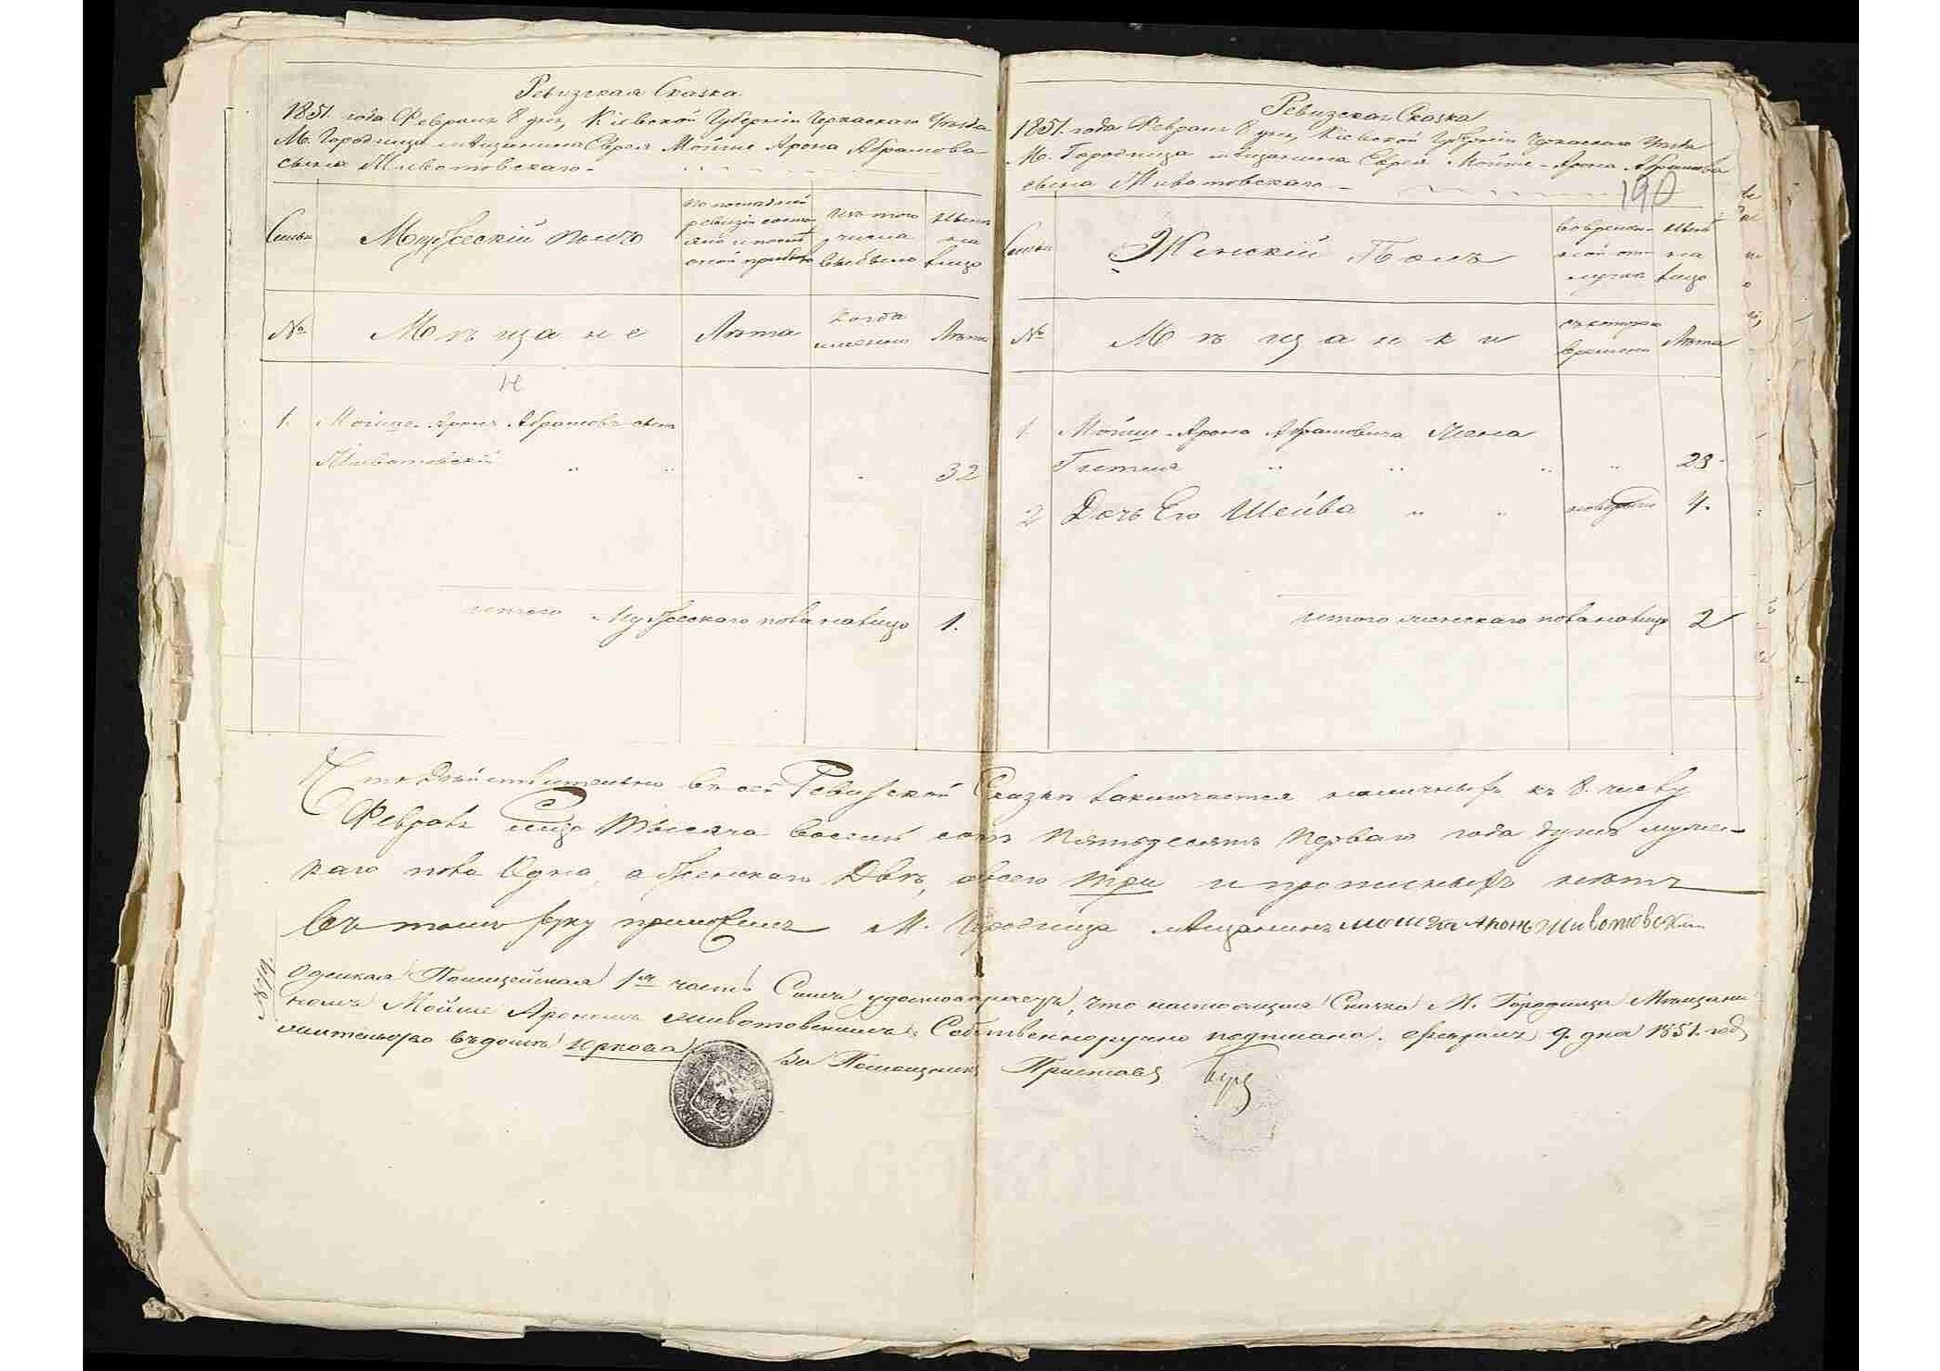 Ревизская Сказка
1851. года Февраля 8 дня, Кіевской Губерніи Черкаскаго Уѣзда
М. Городища мѣщанина Еврея Мойше Арона Абрамова
сына Животовскаго.
Семьи
Мужескій полъ
по последней ревизіи состояло и после оной прибыло
изъ того числа выбыло
ныне на лицо
№
Мѣщане
Лѣта
когда именно
Лѣта
1. Мойше-Аронъ Абрамовъ сынъ
Животовскій 32
итого Мужескаго пола на лицо 1.
Ревизская Сказка
1851. года Февраля 8 дня, Кіевской Губерніи Черкаскаго Уѣзда
М. Городища мѣщанина Еврея Мойше-Арона Абрамова
сына Животовскаго.
190
Семьи
Женскій Полъ
во временной отлучке
ныне на лицо
№
Мѣщанки
съ котораго времени
Лѣта
1 Мойше-Арона Абрамовича Жена
23
2 Дочь Его Шейва 4.
итого женскаго пола на лицо 2
Что Действительно въ сей Ревизской Сказке заключается наличныхъ къ 8. числу
Февраля Тысяча восемь сотъ Пятьдесятъ Перваго года душъ мужес-
каго пола Одна, а женскаго Двѣ, всего три и прописныхъ нетъ
Въ томъ руку приложилъ М. Городища мѣщанинъ мошка Аронъ Животовски
№ 79.
Одеская Полицейская 1я часть Симъ удостоверяетъ, что настоящая Сказка М. Городища Мѣщани
номъ Мойше Арономъ Животовскимъ Собственноручно подписана. Февраля 9. дня 1851. года
жительство въ доме Юркова
За Помощника Пристава